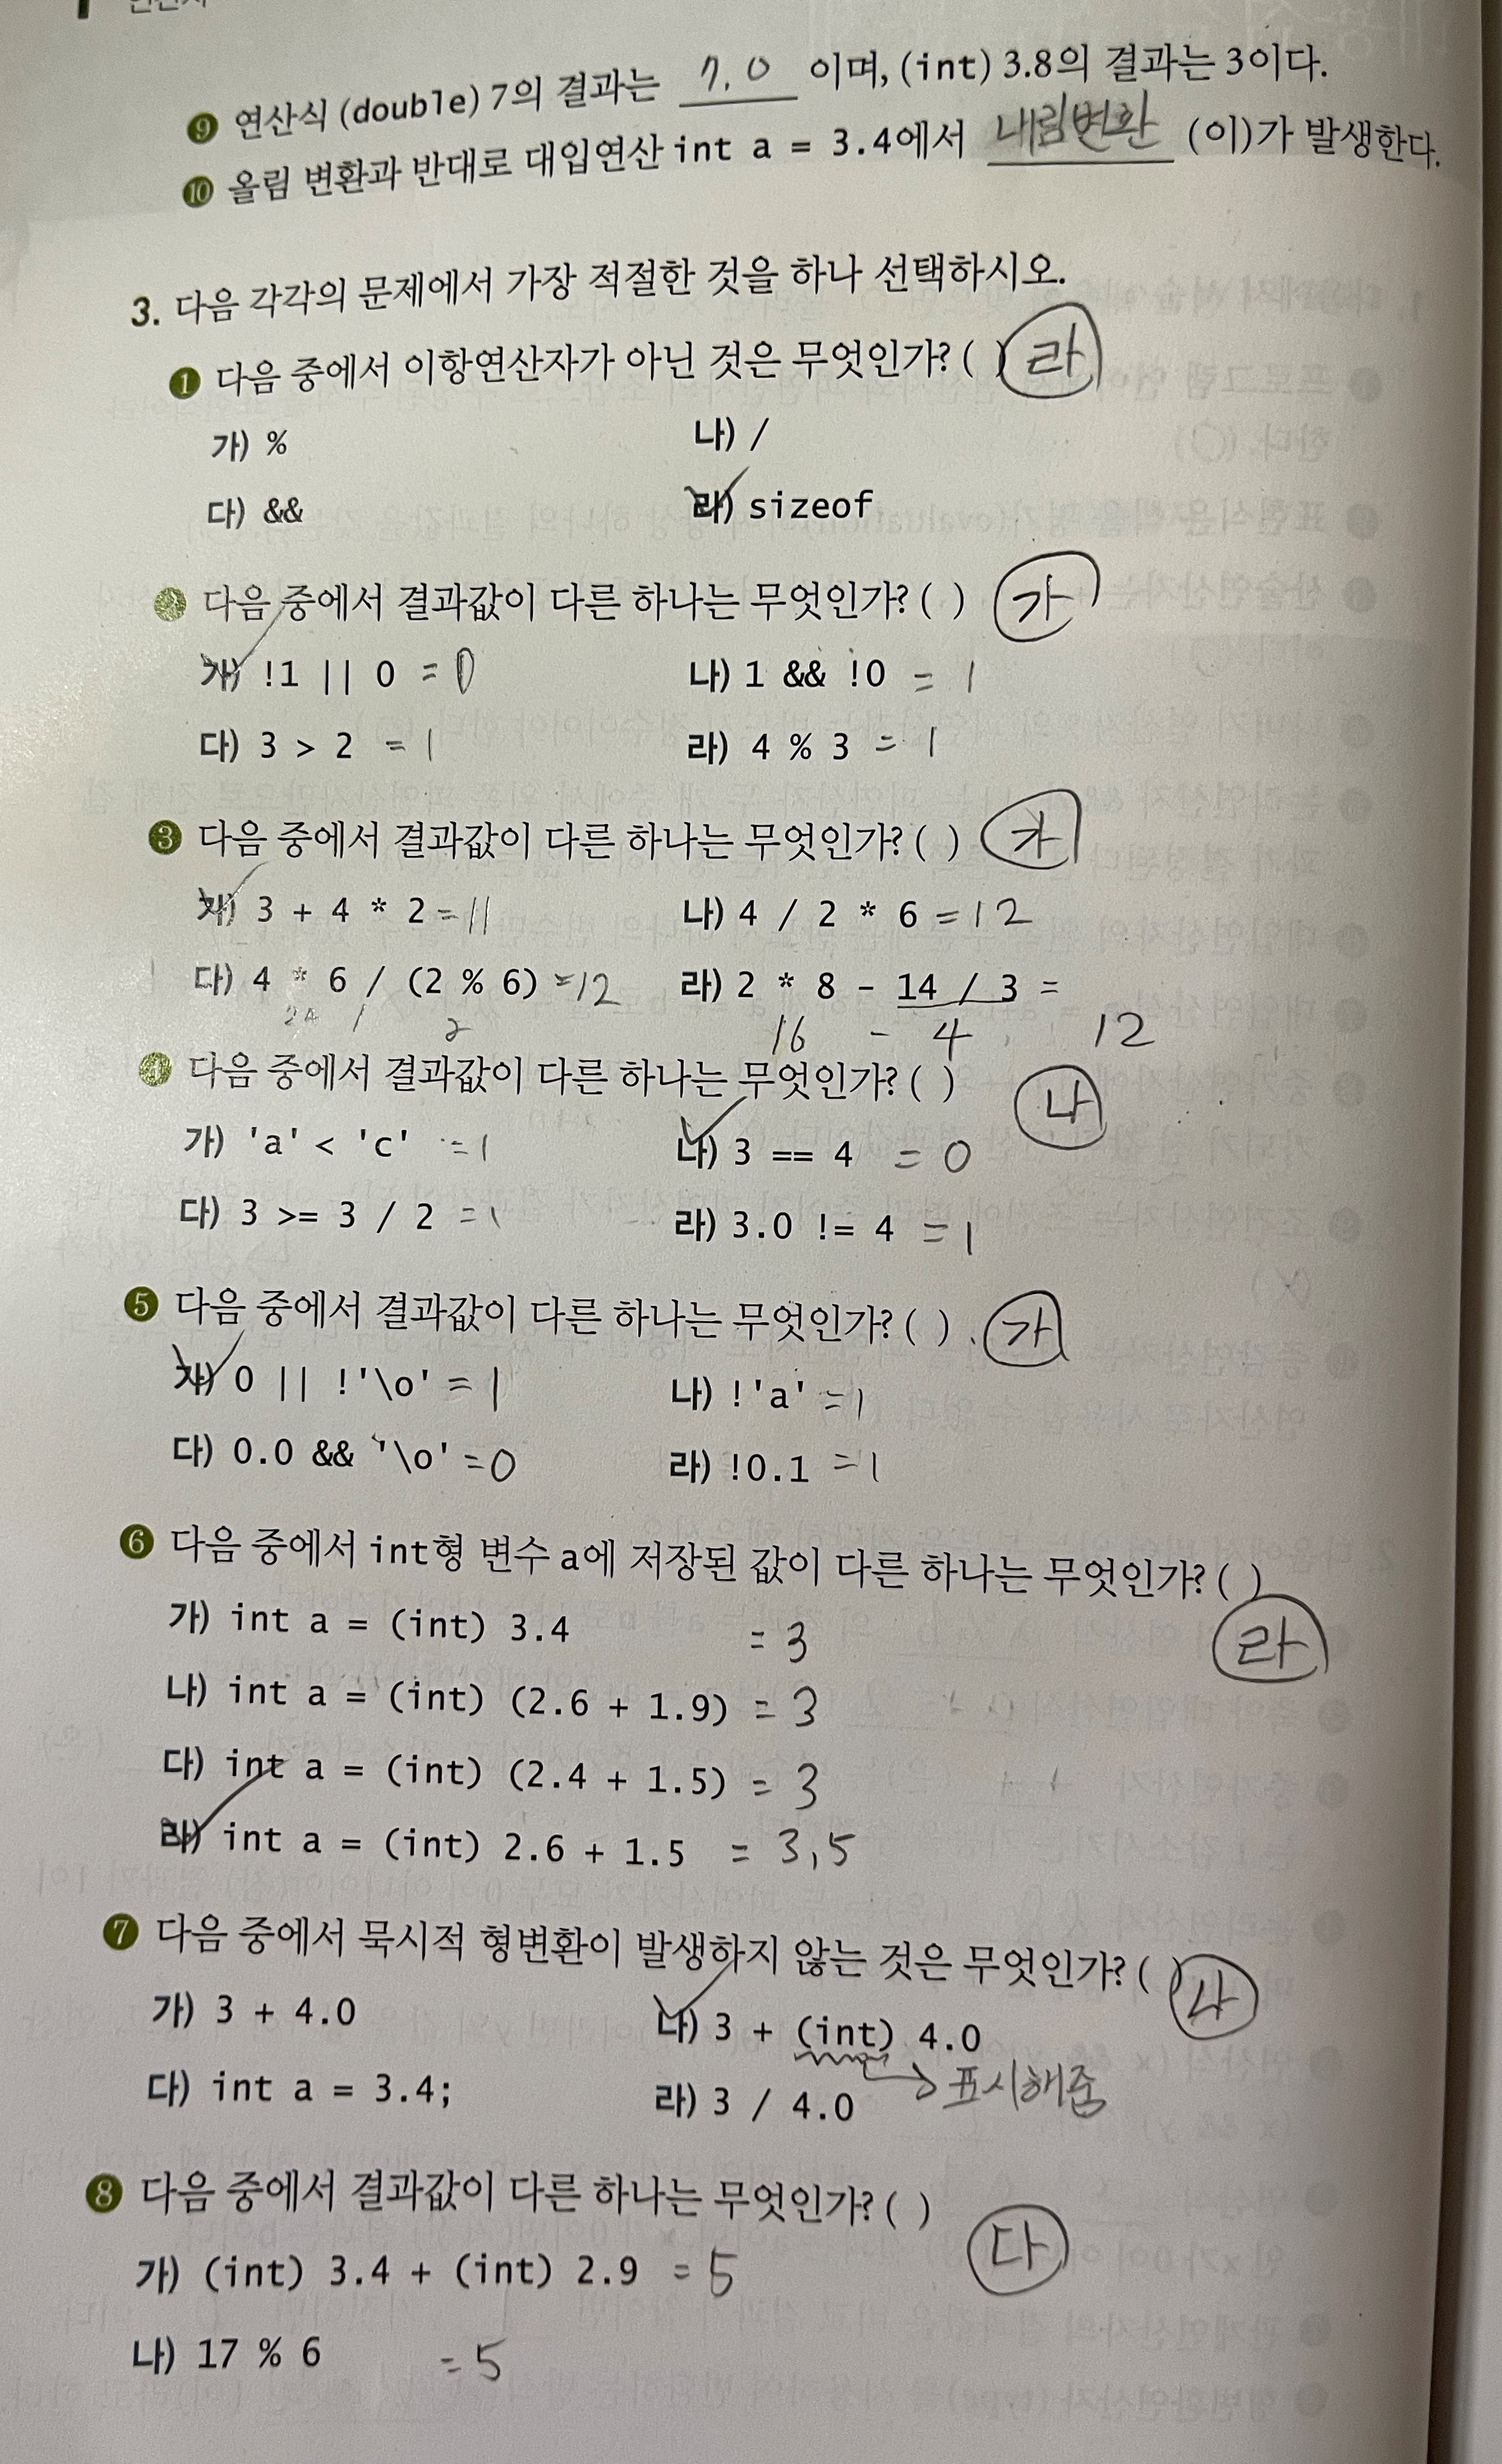 ❾ 연산식 (double) 7의 결과는 7.0 이며, (int) 3.8의 결과는 3이다.
❿ 올림 변환과 반대로 대입연산 int a = 3.4에서 내림변환 (이)가 발생한다.
3. 다음 각각의 문제에서 가장 적절한 것을 하나 선택하시오.
❶ 다음 중에서 이항연산자가 아닌 것은 무엇인가? ( ) 라
가) % 나) /
다) && 라) sizeof
❷ 다음 중에서 결과값이 다른 하나는 무엇인가? ( ) 가
가) !1 || 0 = 0 나) 1 && !0 = 1
다) 3 > 2 = 1 라) 4 % 3 = 1
❸ 다음 중에서 결과값이 다른 하나는 무엇인가? ( ) 가
가) 3 + 4 * 2 = 11 나) 4 / 2 * 6 = 12
다) 4 * 6 / (2 % 6) = 12 라) 2 * 8 - 14 / 3 =
24 / 2 16 - 4 12
❹ 다음 중에서 결과값이 다른 하나는 무엇인가? ( ) 나
가) 'a' < 'c' = 1 나) 3 == 4 = 0
다) 3 >= 3 / 2 = 1 라) 3.0 != 4 = 1
❺ 다음 중에서 결과값이 다른 하나는 무엇인가? ( ) 가
가) 0 || !'\o' = 1 나) !'a' = 1
다) 0.0 && '\o' = 0 라) !0.1 = 1
❻ 다음 중에서 int형 변수 a에 저장된 값이 다른 하나는 무엇인가? ( )
라
가) int a = (int) 3.4 = 3
나) int a = (int) (2.6 + 1.9) = 3
다) int a = (int) (2.4 + 1.5) = 3
라) int a = (int) 2.6 + 1.5 = 3,5
❼ 다음 중에서 묵시적 형변환이 발생하지 않는 것은 무엇인가? ( ) 나
가) 3 + 4.0 나) 3 + (int) 4.0
표시해줌
다) int a = 3.4; 라) 3 / 4.0
❽ 다음 중에서 결과값이 다른 하나는 무엇인가? ( ) 다
가) (int) 3.4 + (int) 2.9 = 5
나) 17 % 6 = 5